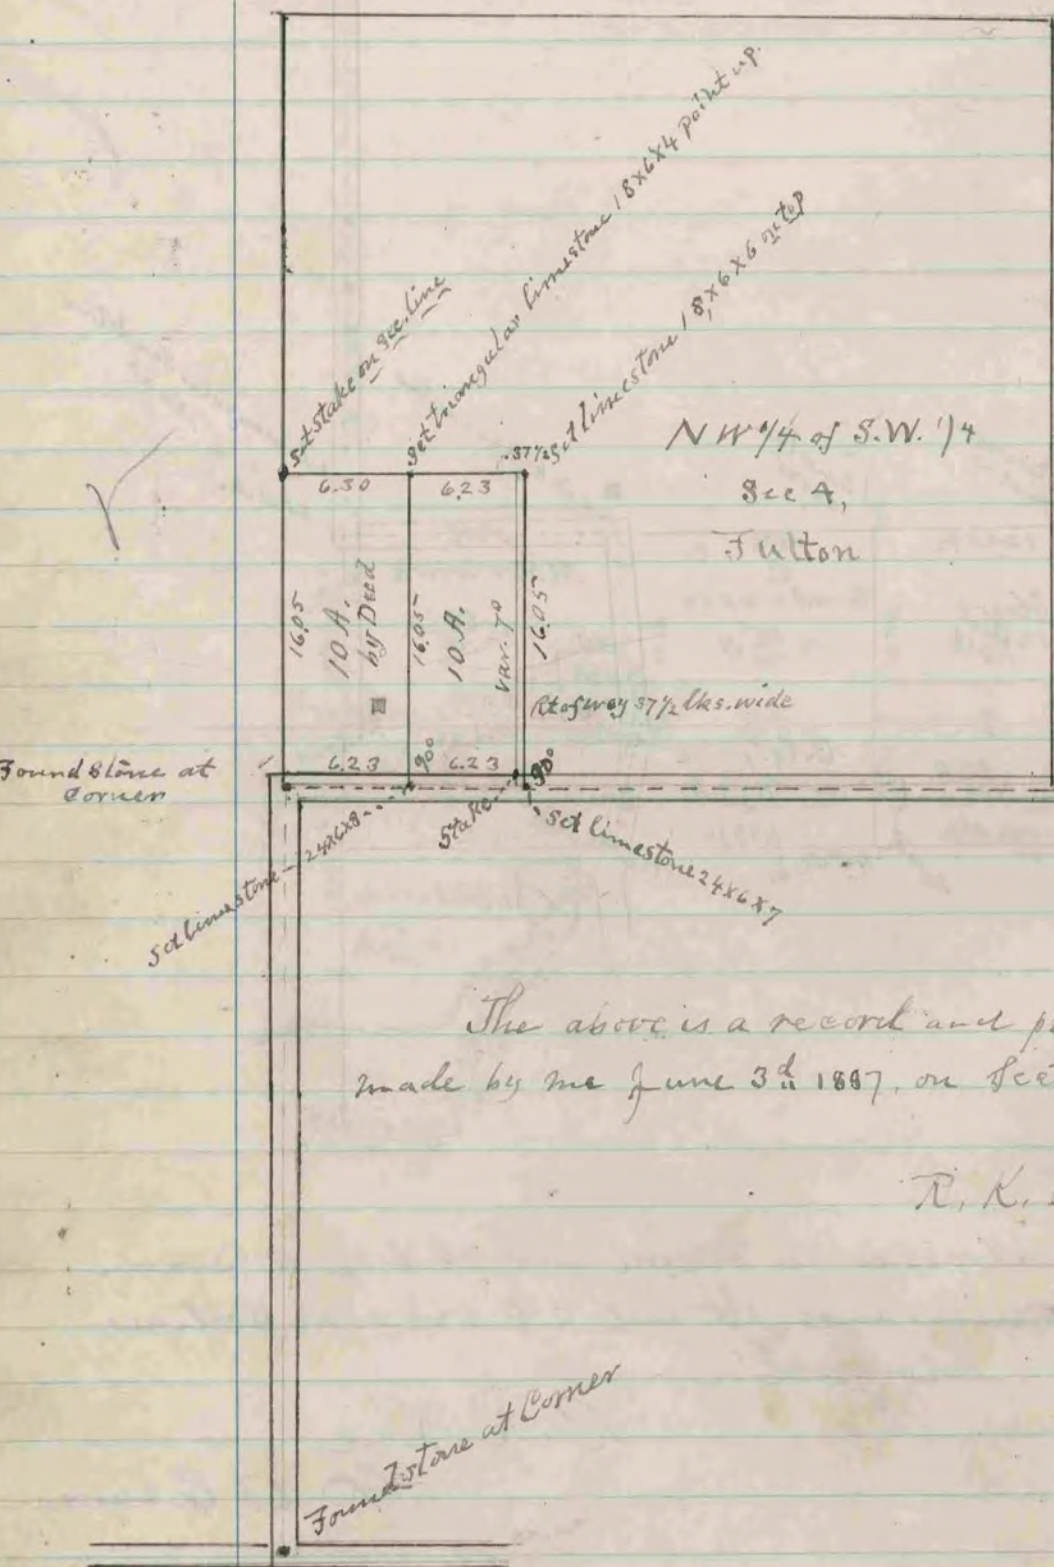 Set stake on Sec. line
Set triangular limestone 18x6x4 point up.
Set limestone 18x6x6 on top
N W 1/4 of S.W. 1/4
Sec 4,
Fulton
6.30
6.23
.37 1/2
16.05
10 A.
by Deed
16.05
10 A.
var. 7°
16.05
Rt of way 37 1/2 lks. wide
Found Stone at
Corner
6.23
90°
6.23
90°
Set limestone 24x6x8
Stake
Set limestone 24x6x7
The above is a record and
made by me June 3d 1887, on Sec
R. K.
Found stone at Corner